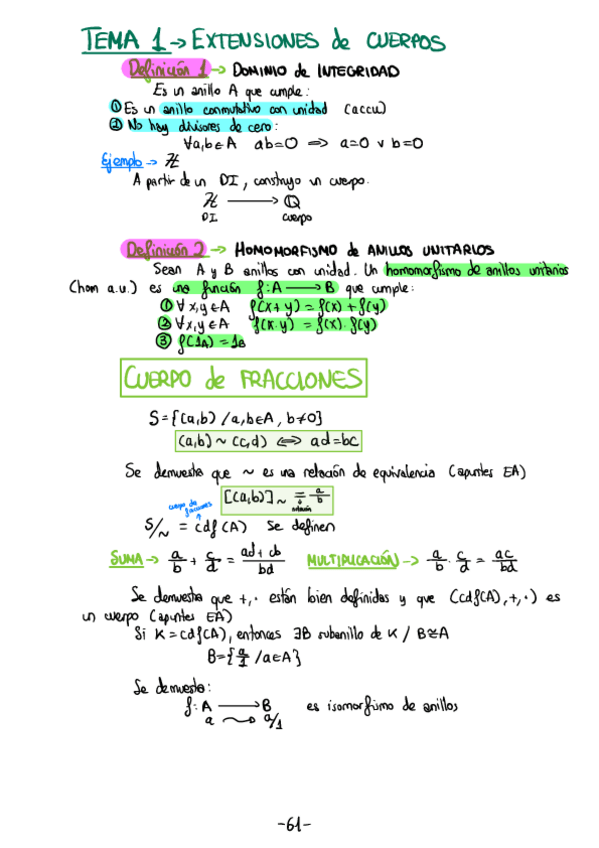 TEMA 1 → EXTENSIONES de CUERPOS
Definición 1 → DOMINIO de INTEGRIDAD
Es un anillo A que cumple:
① Es un anillo conmutativo con unidad (accu)
② No hay divisores de cero:
∀a,b∈A ab=0 ⇒ a=0 v b=0
Ejemplo → ℤ
A partir de un DI, construyo un cuerpo.
ℤ ⟶ ℚ
DI cuerpo
Definición 2 → HOMOMORFISMO de ANILLOS UNITARIOS
Sean A y B anillos con unidad. Un homomorfismo de anillos unitarios
(hom a.u.) es una función f: A ⟶ B que cumple:
① ∀x,y∈A f(x+y) = f(x)+f(y)
② ∀x,y∈A f(x·y) = f(x)·f(y)
③ f(1A) = 1B
CUERPO de FRACCIONES
S={(a,b) / a,b∈A, b≠0}
(a,b) ~ (c,d) ⟺ ad=bc
Se demuestra que ~ es una relación de equivalencia (apuntes EA)
[(a,b)]~ = a/b
notación
cuerpo de fracciones
S/~ = cdf(A) Se definen
SUMA → a/b + c/d = ad+cb/bd MULTIPLICACIÓN → a/b · c/d = ac/bd
Se demuestra que +,· están bien definidas y que (cdf(A),+,·) es
un cuerpo (apuntes EA)
Si K=cdf(A), entonces ∃B subanillo de K / B≅A
B={a/1 / a∈A}
Se demuestra:
f: A ⟶ B es isomorfismo de anillos
a ⤳ a/1
-61-